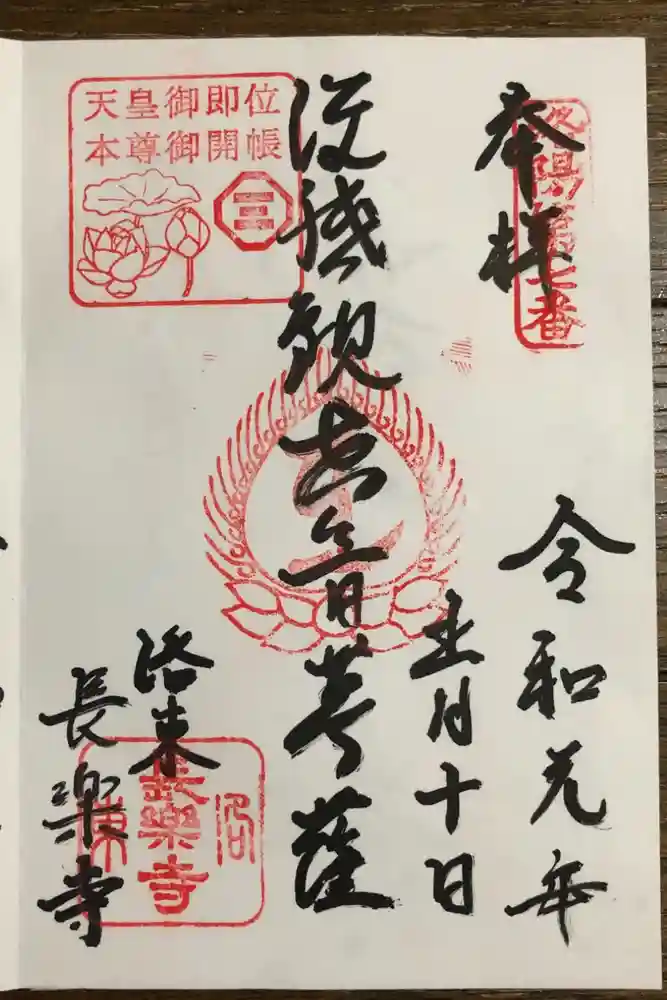 奉拝
洛陽第七番
令和元年
五月十日
准胝観世音菩薩
天皇御即位
本尊御開帳
洛東
長楽寺
洛東
長樂寺